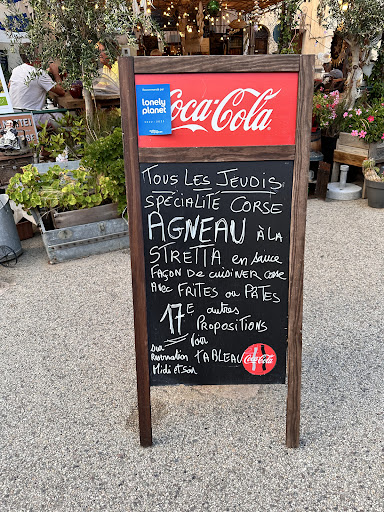 Recommandé par
lonely planet
Coca-Cola
TOUS LES JEUDIS
SPÉCIALITÉ CORSE
AGNEAU À LA
STRETTA en SAUCE
FAÇON DE CUISINER CORSE
AVEC FRITES OU PÂTES
17E autres
PROPOSITIONS
Voir
sur
Réservation TABLEAU
Midi et Soir
Coca-Cola